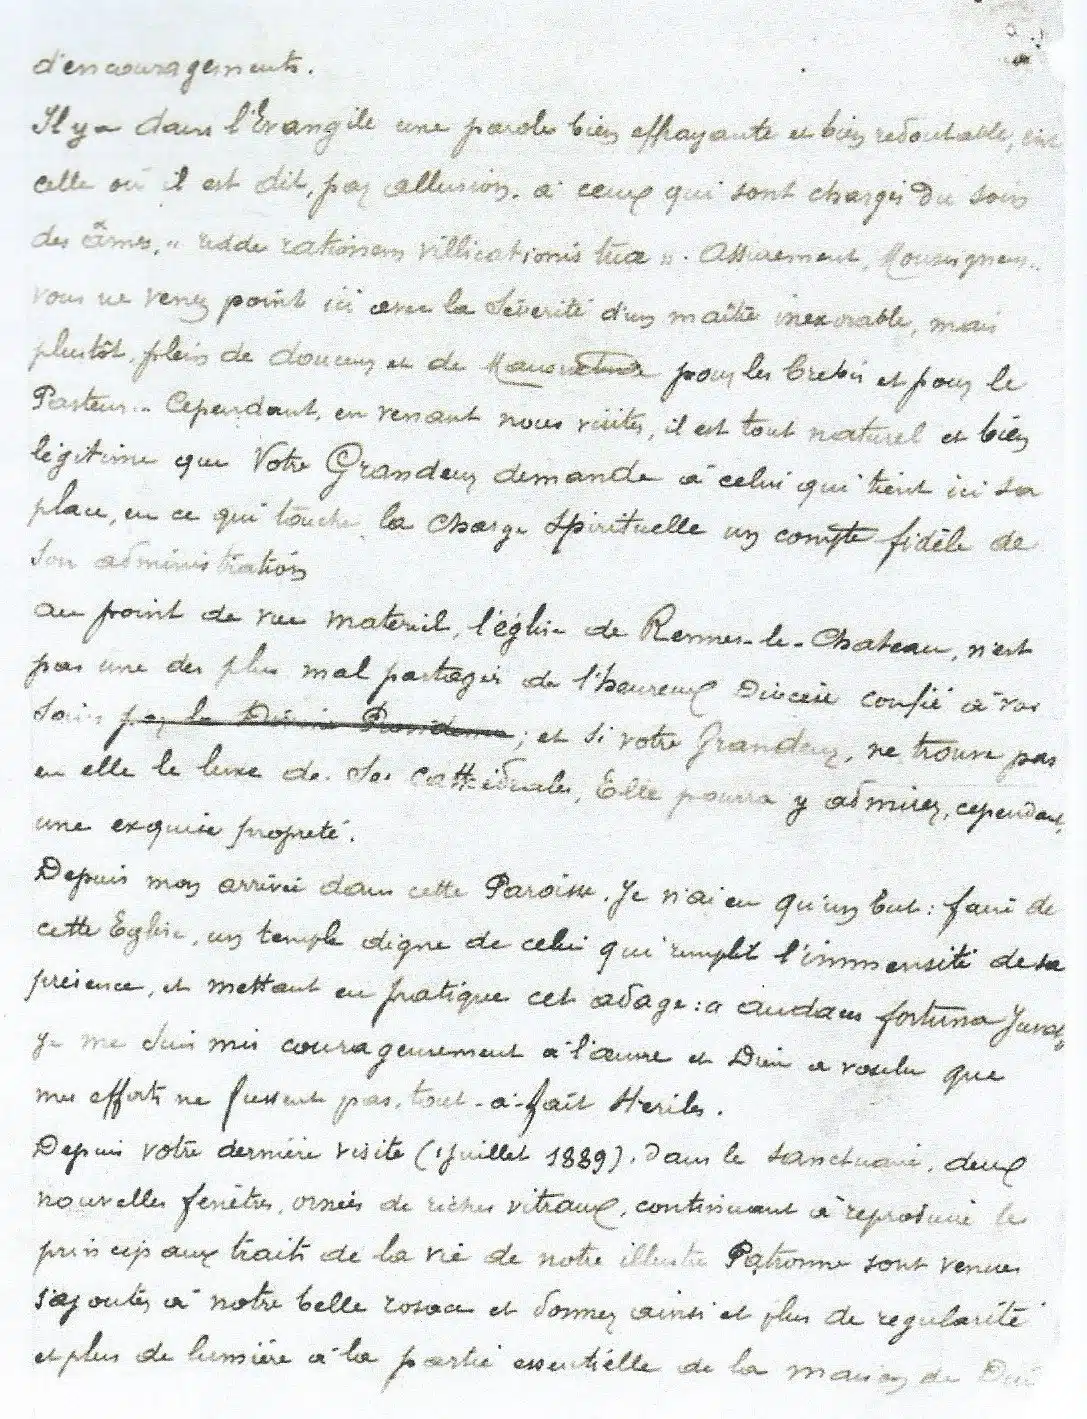 d'encouragements.
Il y a dans l'Evangile une parole bien effrayante et bien redoutable, c'est
celle où il est dit, par allusion, à ceux qui sont chargés du soin
des âmes, " redde rationem villicationis tuæ ". Assurement, Monseigneur,
vous ne venez point ici avec la sévérité d'un maître inexorable, mais
plutôt, plein de douceur et de Mansuétude pour les brebis et pour le
Pasteur.. Cependant, en venant nous visiter, il est tout naturel et bien
légitime que Votre Grandeur demande à celui qui tient ici sa
place, en ce qui touche la charge spirituelle un compte fidèle de
son administration
au point de vue materiel, l'église de Rennes-le-Chateau, n'est
pas une des plus mal partagées de l'heureux Diocèse confié à vos
soins par la Divine Providence ; et si votre Grandeur, ne trouve pas
en elle le luxe de ses cathédrales, Elle pourra y admirer, cependant,
une exquise propreté.
Depuis mon arrivée dans cette Paroisse, Je n'ai eu qu'un but : faire de
cette Eglise, un temple digne de celui qui remplit l'immensité de sa
présence, et mettant en pratique cet adage : " audaces fortuna juvat "
je me suis mis courageusement à l'œuvre et Dieu a voulu que
mes efforts ne fussent pas, tout-à-fait steriles.
Depuis votre dernière visite (juillet 1889), dans le sanctuaire, deux
nouvelles fenêtres, ornées de riches vitraux, continuant à reproduire les
principaux traits de la vie de notre illustre Patronne sont venues
s'ajouter à notre belle rosace et donner ainsi et plus de regularité
et plus de lumière à la partie essentielle de la maison de Dieu